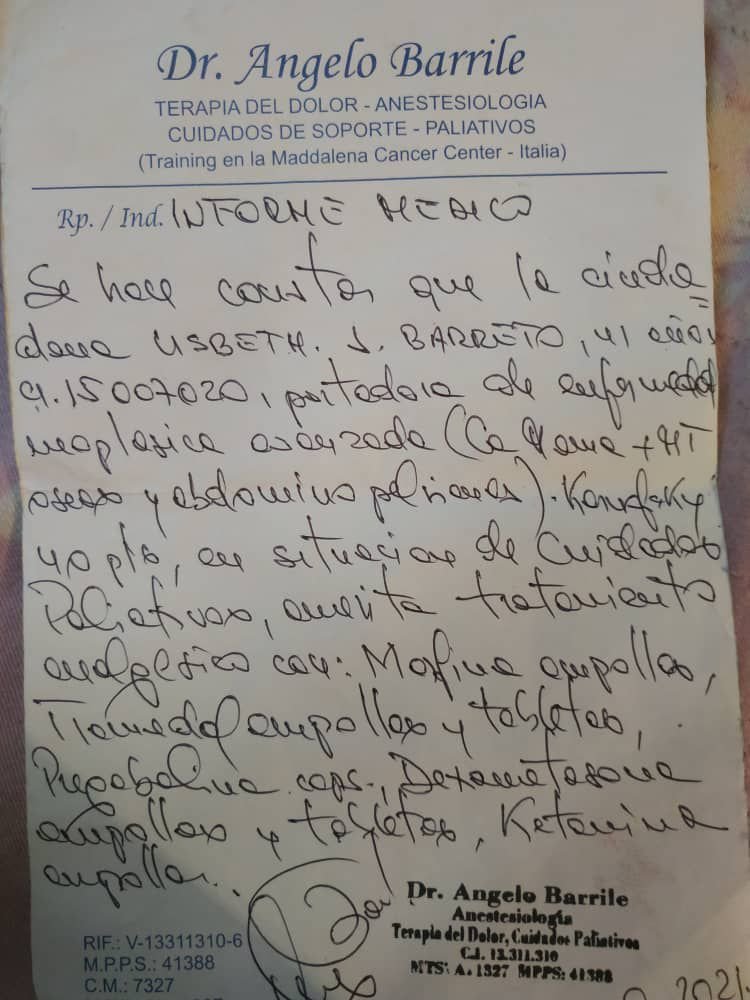 Dr. Angelo Barrile
TERAPIA DEL DOLOR - ANESTESIOLOGIA
CUIDADOS DE SOPORTE - PALIATIVOS
(Training en la Maddalena Cancer Center - Italia)
Rp. / Ind. INFORME MEDICO
Se hace constar que la ciuda=
dana LISBETH. J. BARRETO, 41 años
CI. 15007020, portadora de enfermedad
neoplasica avanzada (Ca Mama + MT
oseas y abdomino pelvianas). Karnofsky
40 pts, en situacion de Cuidados
Paliativos, amerita tratamiento
analgesico con: Morfina ampollas,
Tramadol ampollas y tabletas,
Pregabalina caps., Dexametasona
ampollas y tabletas, Ketamina
ampollas..
Dr. Angelo Barrile
Anestesiología
Terapia del Dolor, Cuidados Paliativos
C.I. 13.311.310
MTS: A. 1327 MPPS: 41388
RIF.: V-13311310-6
M.P.P.S.: 41388
C.M.: 7327
2021